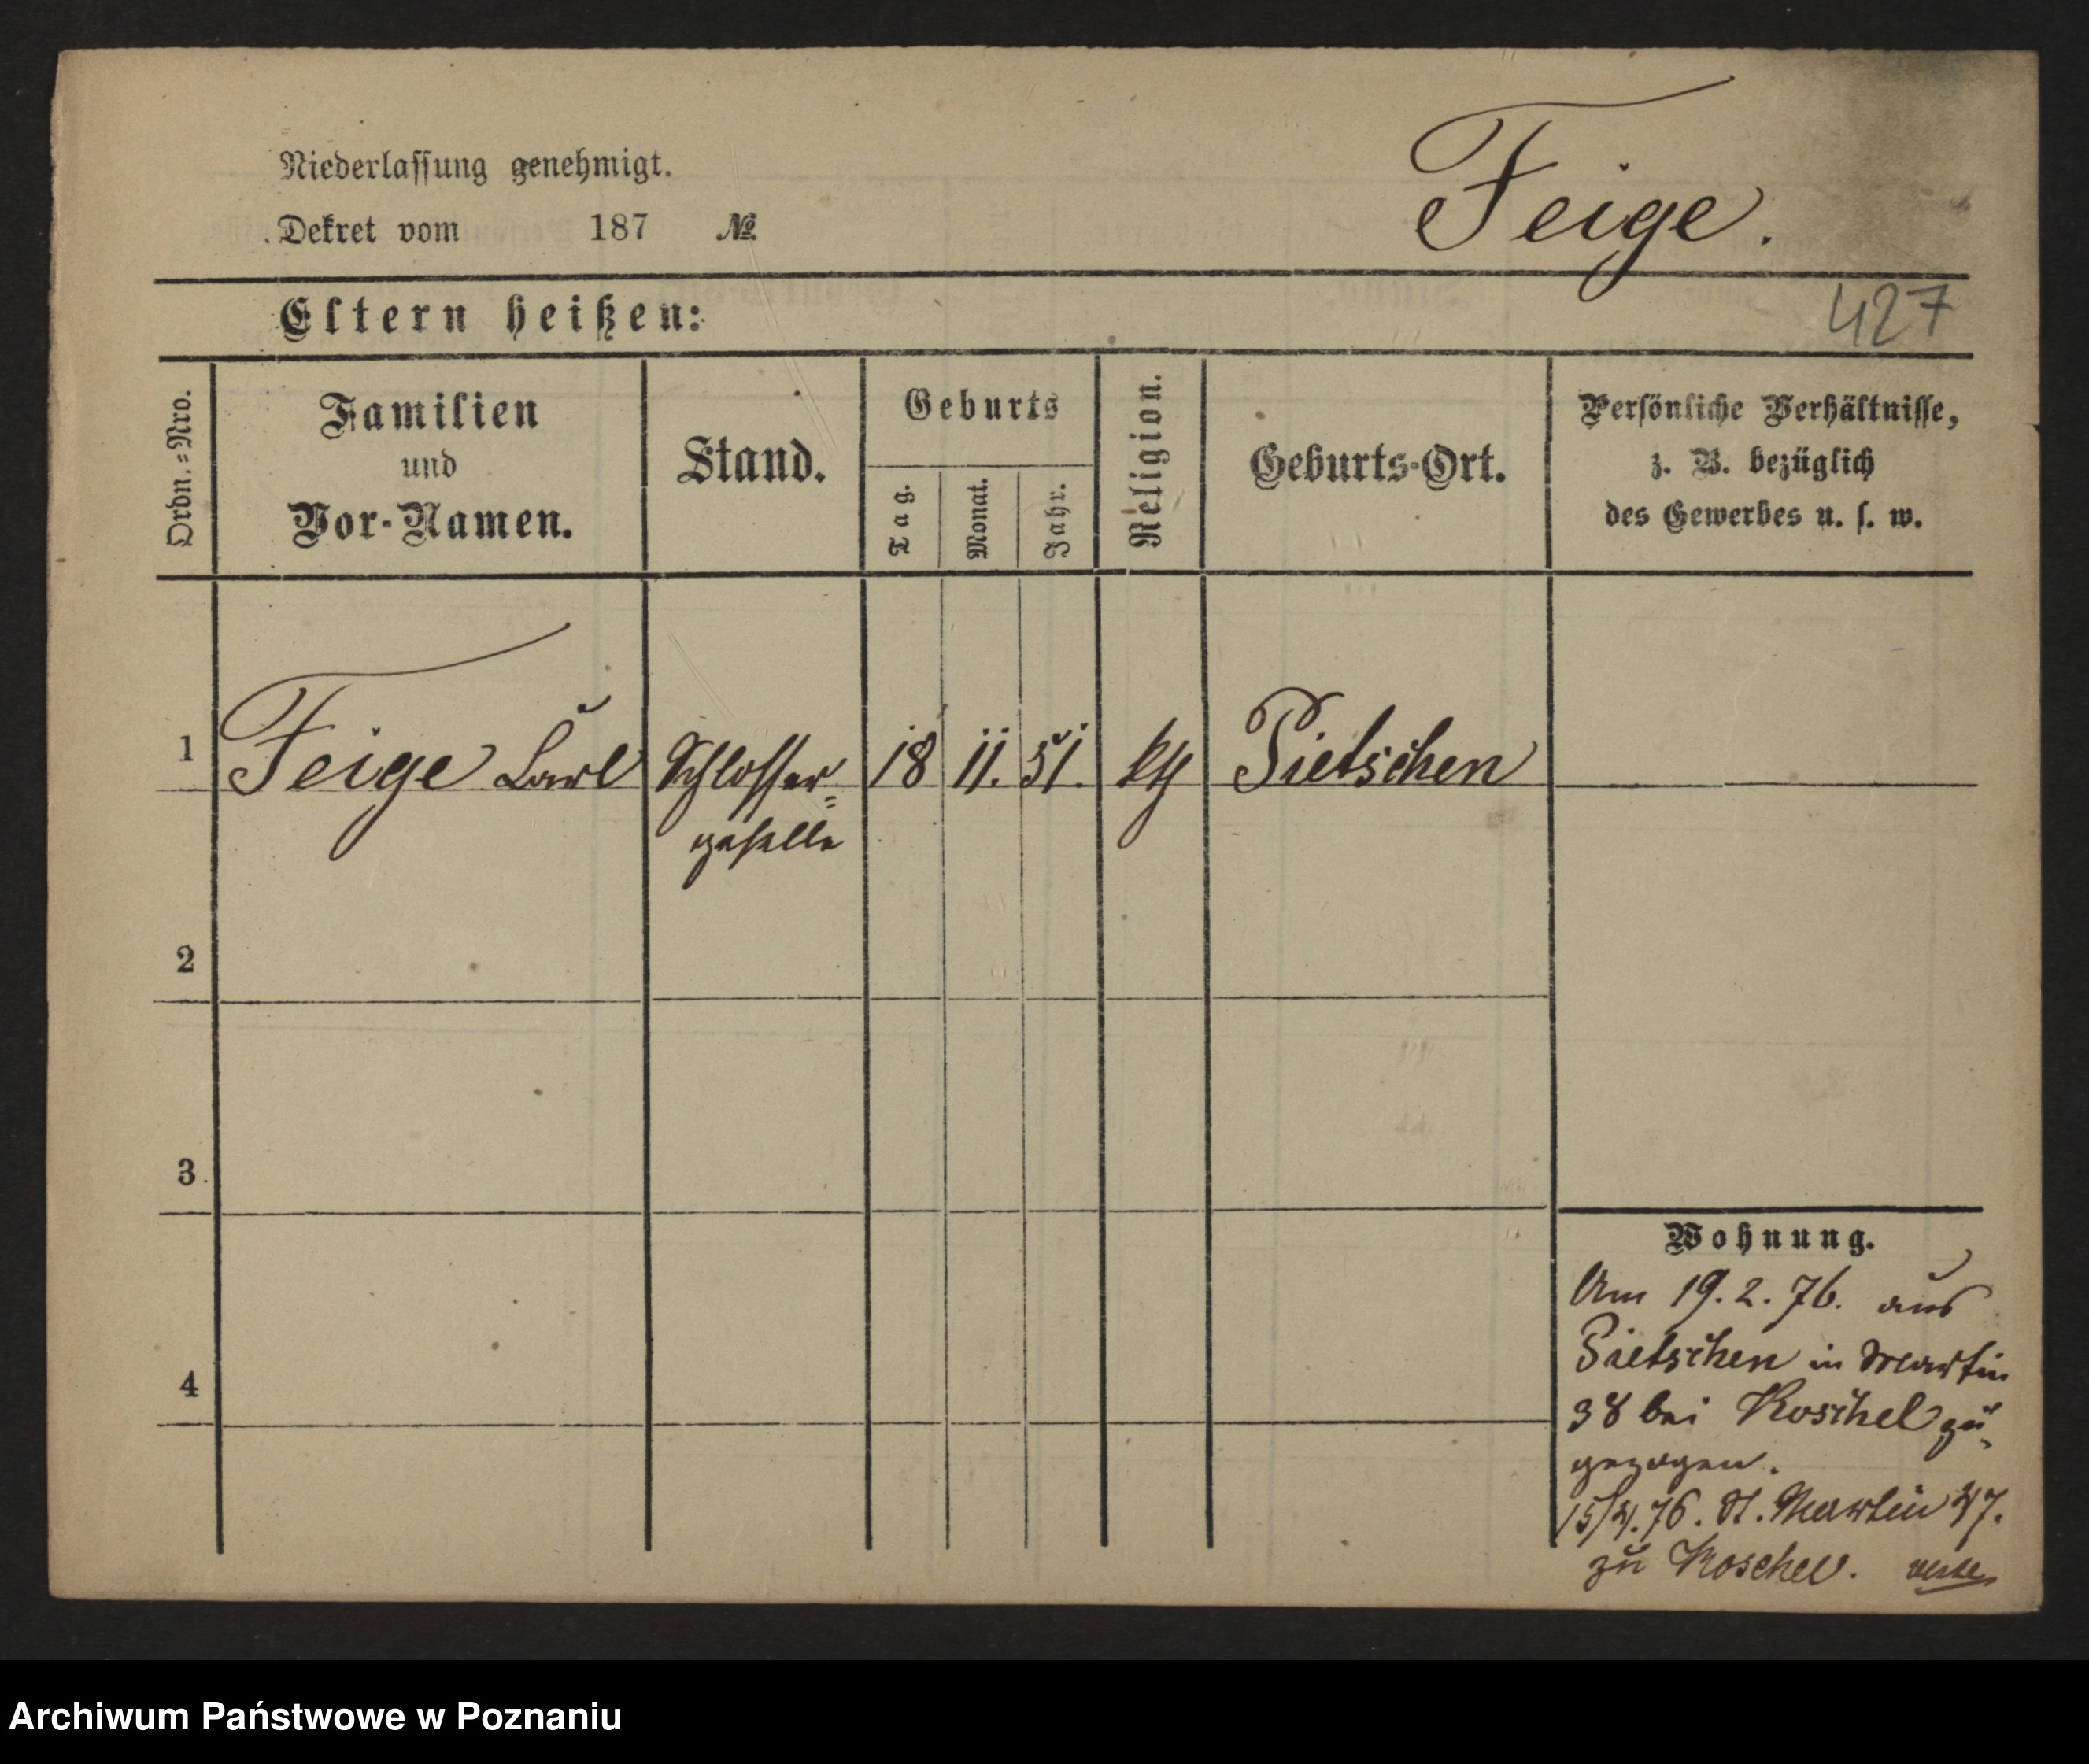 Niederlassung genehmigt.
Dekret vom 187 №
Feige.
Eltern heißen:
427
Ordn.=Nro.
Familien
und
Vor-Namen.
Stand.
Geburts
Tag.
Monat.
Jahr.
Religion.
Geburts-Ort.
Persönliche Verhältnisse,
z. B. bezüglich
des Gewerbes u. s. w.
1 Feige Carl Schlosser= 18 11. 51. kth Pietschen
geselle
2
3
4
Wohnung.
Am 19. 2. 76. aus
Pietschen in Martin
38 bei Koschel zu
gezogen.
15/4. 76. St. Martin 47.
zu Koschel.
Archiwum Państwowe w Poznaniu